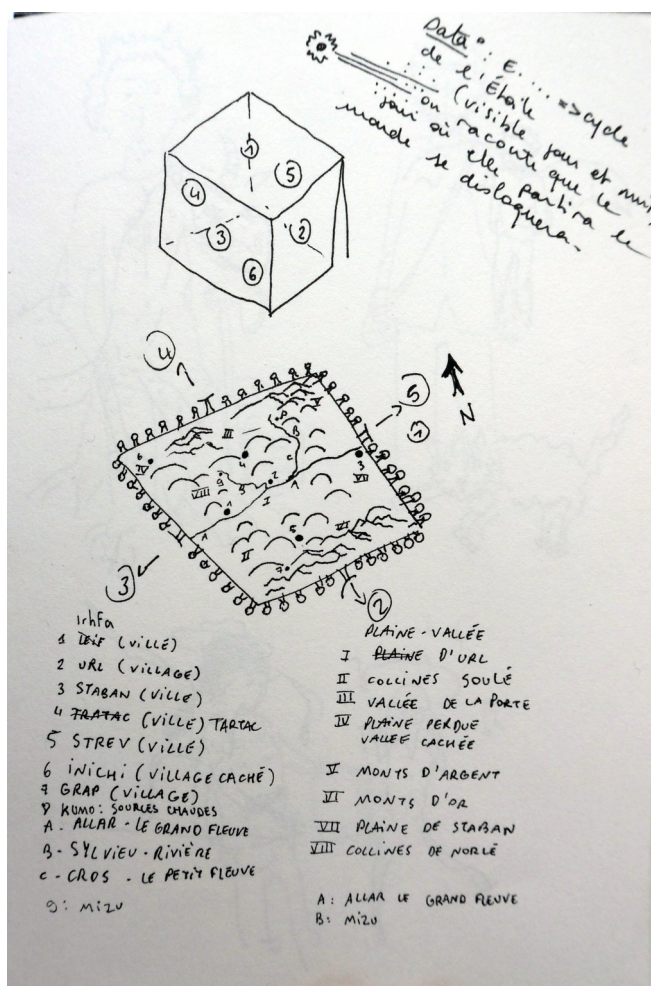 Data : E.... => cycle
de l'Étoile
(visible jour et nuit,
on raconte que le
jour où elle partira le
monde se disloquera.
1
4
5
3
2
6
4
5
1
N
3
2
Irhfa
1 (VILLE)
2 URL (VILLAGE)
3 STABAN (VILLE)
4 TRATAC (VILLE) TARTAC
5 STREV (VILLE)
6 INICHI (VILLAGE CACHÉ)
7 GRAP (VILLAGE)
8 KUMO: SOURCES CHAUDES
A - ALLAR - LE GRAND FLEUVE
B - SYLVIEU - RIVIÈRE
C - CROS - LE PETIT FLEUVE
9: MIZU
PLAINE - VALLÉE
I PLAINE D'URL
II COLLINES SOULÉ
III VALLÉE DE LA PORTE
IV PLAINE PERDUE
VALLEE CACHÉE
V MONTS D'ARGENT
VI MONTS D'OR
VII PLAINE DE STABAN
VIII COLLINES DE NORLÉ
A: ALLAR LE GRAND FLEUVE
B: MIZU